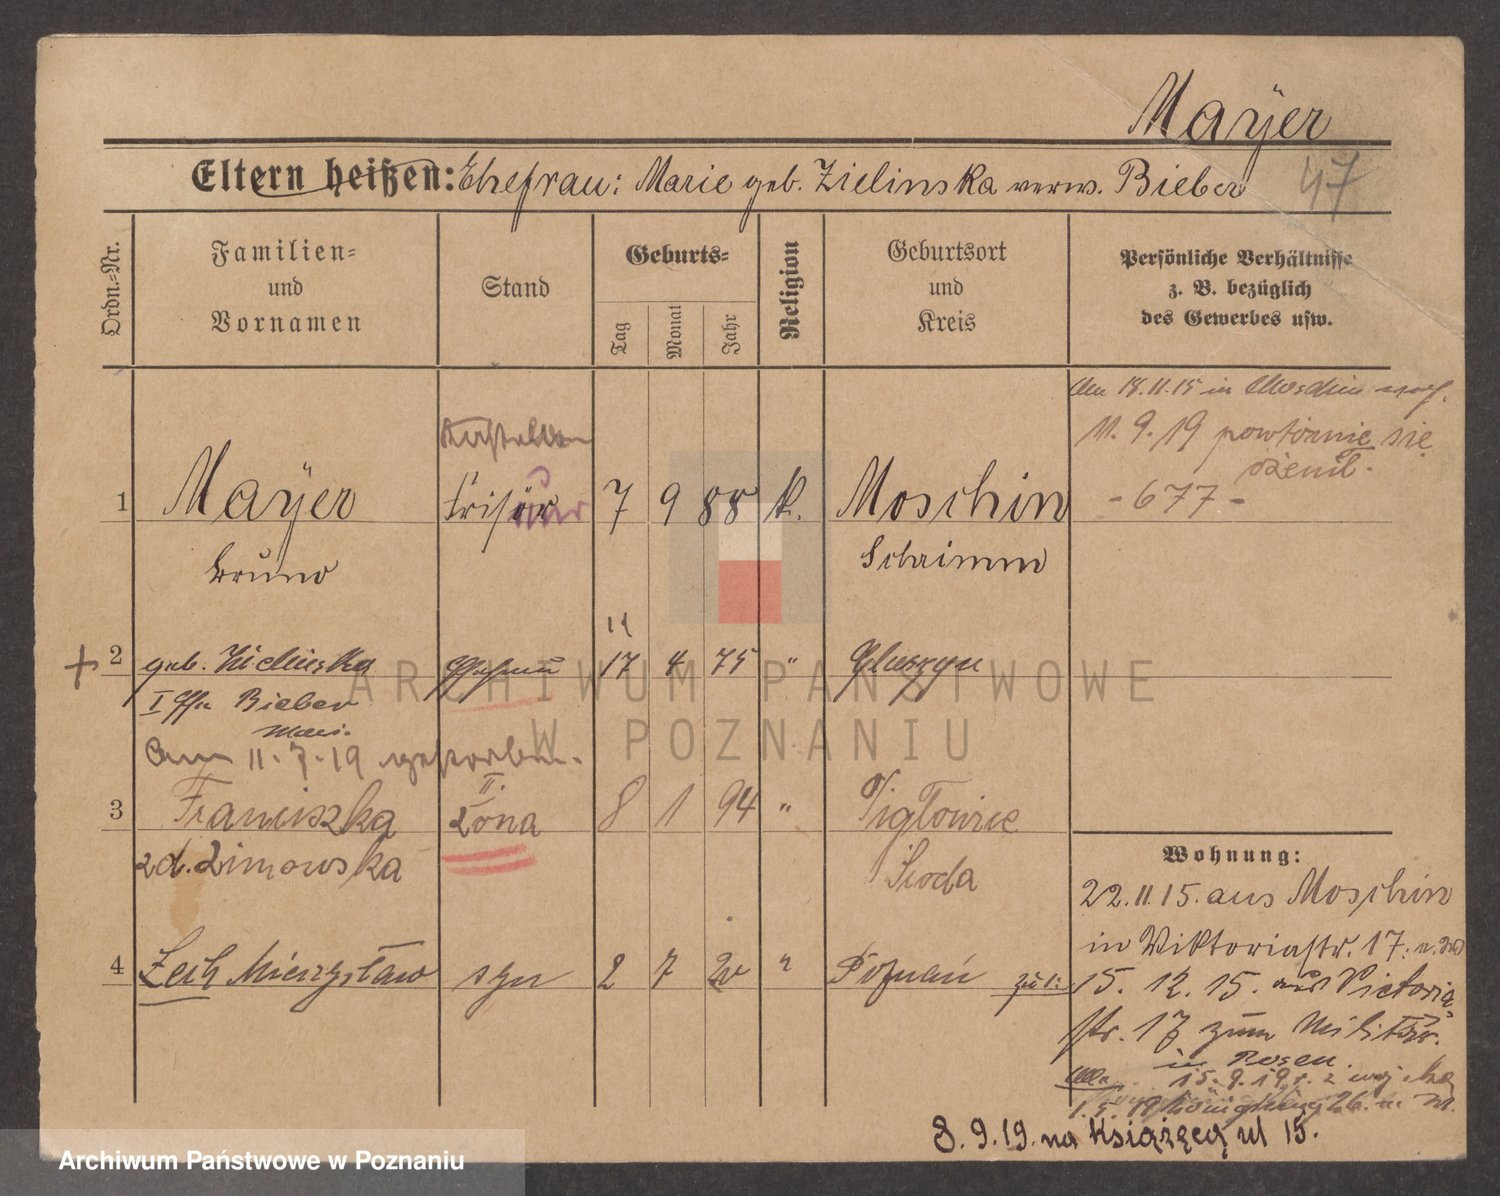 Mayer
47
Eltern heißen: Ehefrau: Marie geb. Zielinska verw. Bieber
Ordn.-Nr.
Familien-
und
Vornamen
Stand
Geburts-
Tag
Monat
Jahr
Religion
Geburtsort
und
Kreis
Persönliche Verhältnisse
z. B. bezüglich
des Gewerbes usw.
1
Mayer
Bruno
Frisör
7 9 88 k.
Moschin
Schrimm
18.11.15 in Moschin
11.9.19 powtórnie się
ożenił.
- 677 -
+ 2
geb. Zielinska
I Bieber
Marie
Ehefrau
17 4 75 "
Am 11.7.19 gestorben.
3
Franciszka
zd. Zimowska
II.
żona
8 1 94 "
Pigłowice
Środa
4
Lech Mieczysław
syn
2 7 20 "
Poznań
Wohnung:
22.11.15. aus Moschin
in Viktoriastr. 17.
15. 12. 15. aus Victoria
str. 17 zum Militär.
in Posen.
15.9.19
1.5.19
8.9.19. na Książęcą ul 15.
ARCHIWUM PAŃSTWOWE
W POZNANIU
Archiwum Państwowe w Poznaniu